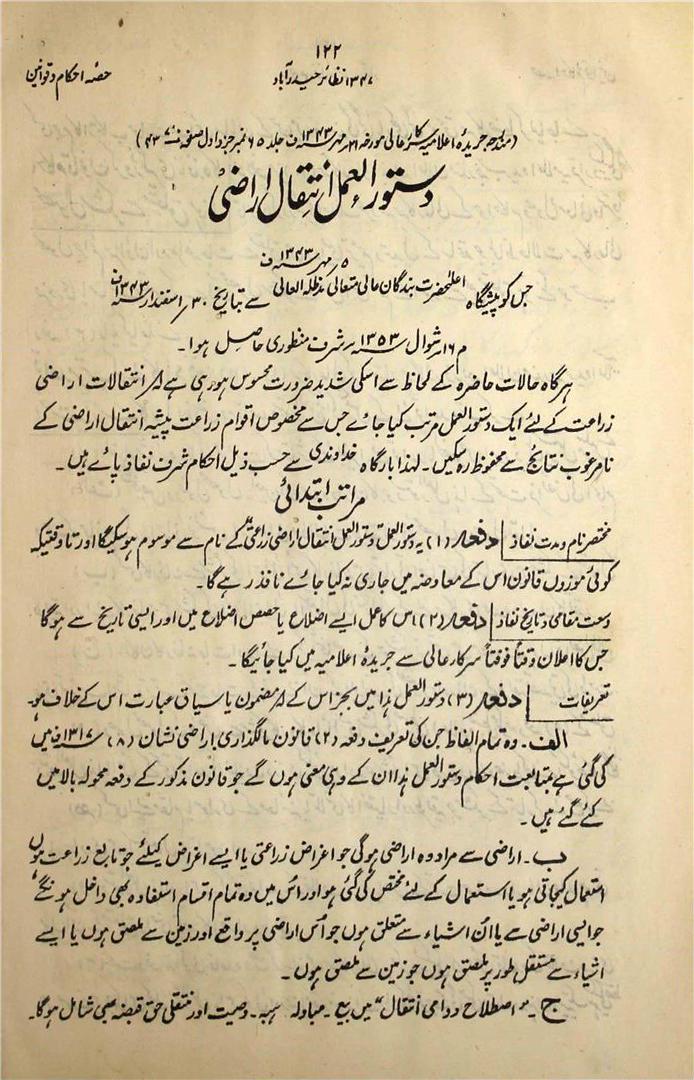 ۱۲۲
حصّہ احکام و قوانین
۱۳۴۷ نظائر حیدرآباد
(مندرجہ جریدۂ اعلامیہ سرکار عالی مورخہ ۲۱؍ مہر ۱۳۴۳ف جلد ۶۵ نمبر جزو اول صفحہ ۴۳۰)
دستور العمل انتقال اراضی
۵؍ مہر ۱۳۴۳ف
جس کو پیشگاہ اعلیٰحضرت بندگان عالی متعالی مدظلہ العالی سے بتاریخ ۳۰؍ اسفندار ۱۳۴۳ف
م ۱۶؍ شوال ۱۳۵۳ شرف منظوری حاصل ہوا۔
ہرگاہ حالات حاضرہ کے لحاظ سے اسکی شدید ضرورت محسوس ہو رہی ہے کہ انتقالات اراضی
زراعت کے لئے ایک دستور العمل مرتب کیا جائے جس سے مخصوص اقوام زراعت پیشہ انتقال اراضی کے
نامرغوب نتائج سے محفوظ رہ سکیں۔ لہذا بارگاہ خداوندی سے حسب ذیل احکام شرف نفاذ پائے ہیں۔
مراتب ابتدائی
مختصر نام و مدت نفاذ | دفعہ (۱) یہ دستور العمل ”دستور العمل انتقال اراضی زراعتی“ کے نام سے موسوم ہو سکیگا اور تا وقتیکہ
کوئی موزوں قانون اس کے معاوضہ میں جاری نہ کیا جائے نافذ رہے گا۔
وسعت مقامی و تاریخ نفاذ | دفعہ (۲) اس کا عمل ایسے اضلاع یا حصص اضلاع میں اور ایسی تاریخ سے ہوگا
جس کا اعلان وقتاً فوقتاً سرکار عالی سے جریدۂ اعلامیہ میں کیا جائیگا۔
تعریفات | دفعہ (۳) دستور العمل ہذا میں بجز اس کے کہ مضمون یا سیاق عبارت اس کے خلاف ہو۔
الف۔ وہ تمام الفاظ جن کی تعریف دفعہ (۲) قانون مالگذاری اراضی نشان (۸) ۱۳۱۷ف میں
کی گئی ہے بمتابعت احکام دستور العمل ہذا ان کے وہی معنی ہوں گے جو قانون مذکور کے دفعہ محولہ بالا میں
کئے گئے ہیں۔
ب۔ اراضی سے مراد وہ اراضی ہوگی جو اغراض زراعتی یا ایسے اغراض کیلئے جو تابع زراعت ہوں
استعمال کیجاتی ہو یا استعمال کے لئے مختص کی گئی ہو اور اس میں وہ تمام اقسام استفادہ بھی داخل ہونگے
جو ایسی اراضی سے یا ان اشیاء سے متعلق ہوں جو اُس اراضی پر واقع اور زمین سے ملصق ہوں یا ایسے
اشیاء سے مستقل طور پر ملصق ہوں جو زمین سے ملصق ہوں۔
ج۔ ”اصطلاح دوامی انتقال“ میں بیع۔ مبادلہ۔ ہبہ۔ وصیت اور منتقلی حق قبضہ بھی شامل ہوگا۔